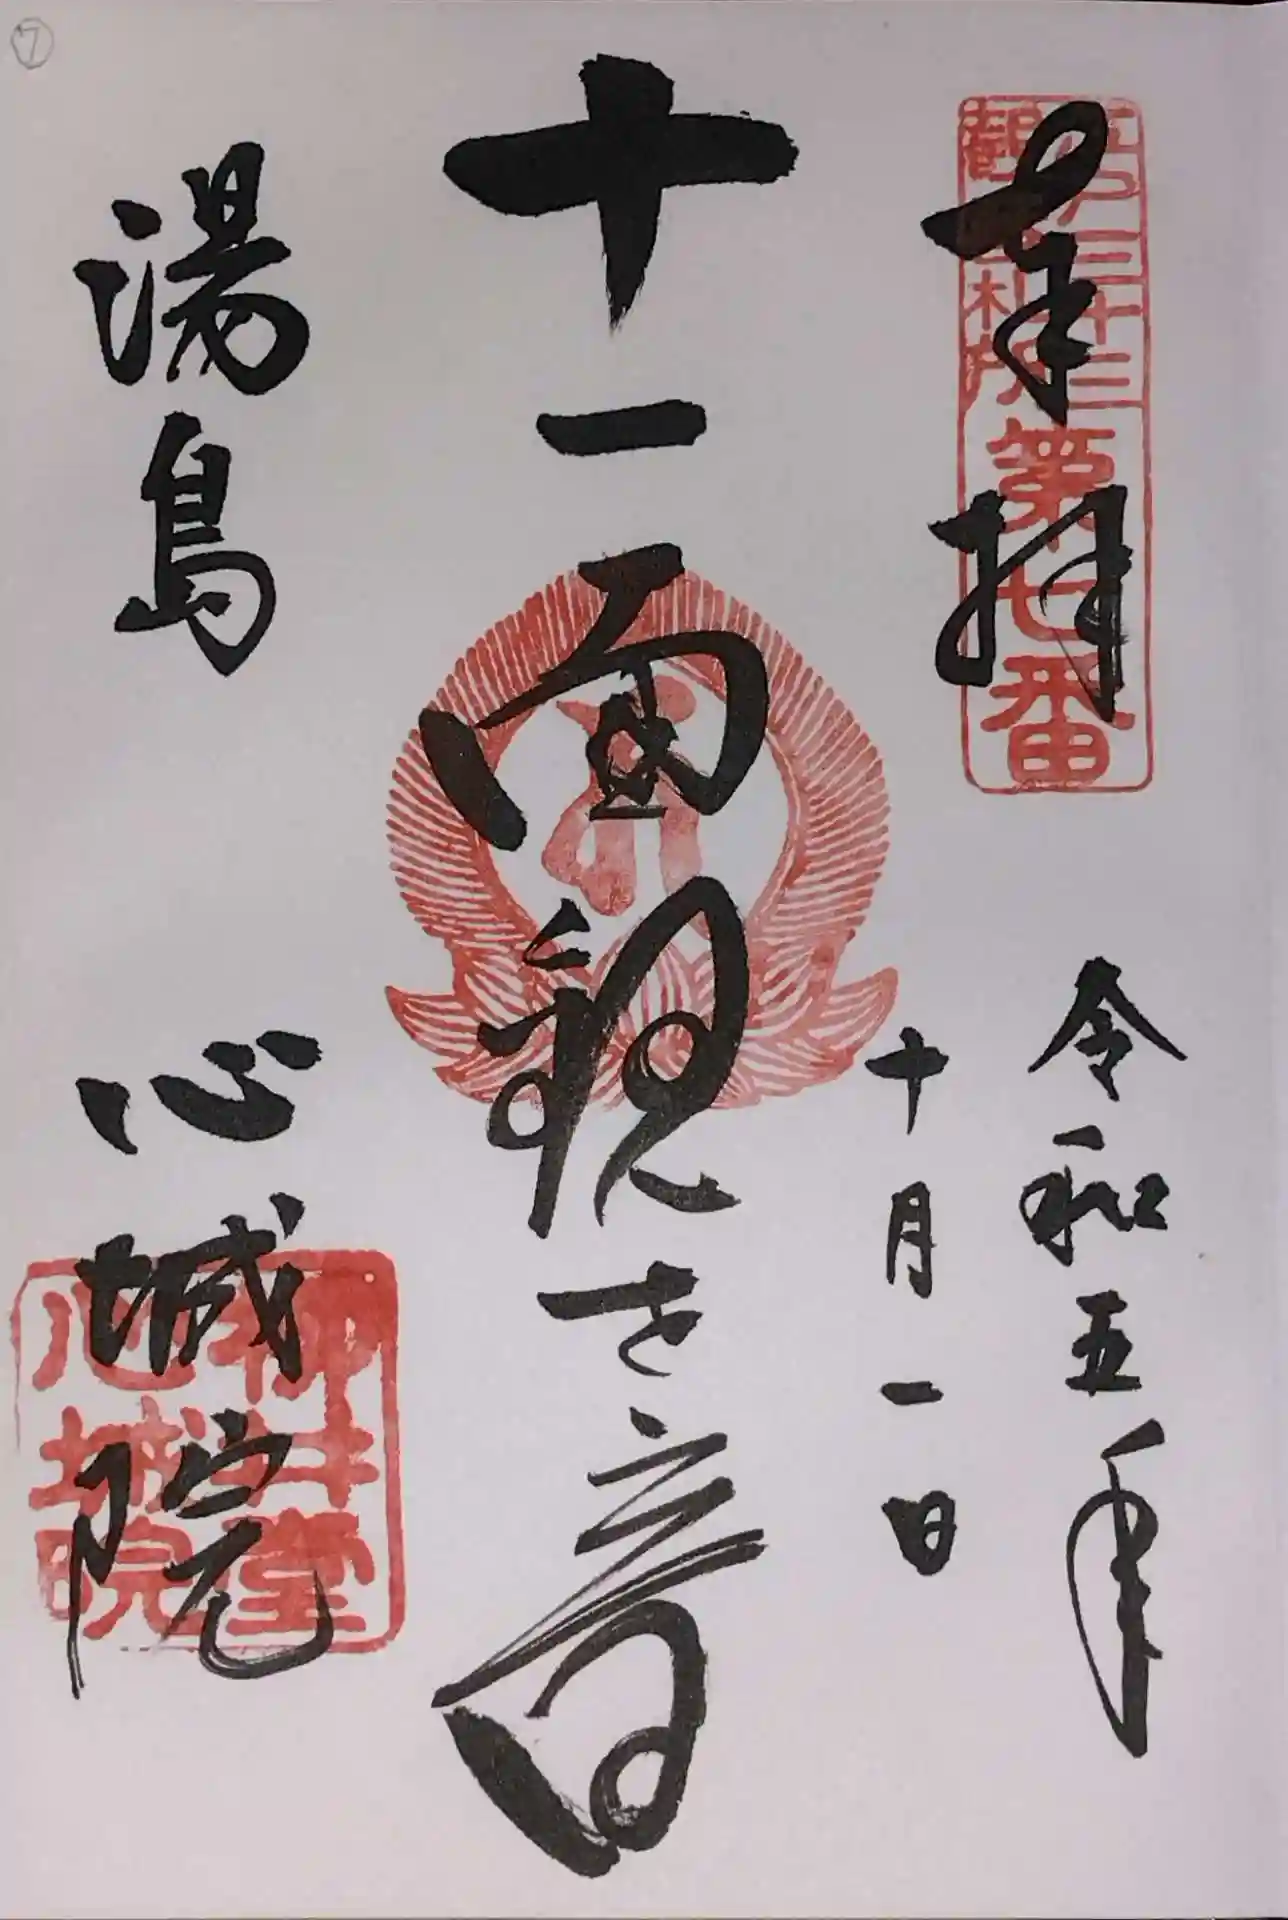 奉拝
江戸三十三
観音札所
第七番
令和五年
十月一日
十一面観世音
湯島
心城院
柳井堂
心城院
⑦